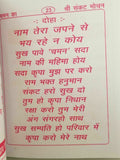 23 श्री संकट मोचन
दोहा
नाम तेरा जपने से
भय रहे न कोय
सुख पावे 'चमन' सदा
नाम की महिमा होय
सदा कृपा मुझ पर करो
राम भक्त हनुमान
संकट हरो सुख दो
तुम हो कृपा निधान
रक्षा करो तुम मेरी
अंग संगरहो साथ
सुख सम्पति हो परिवार में
कृपा करो मेरे नाथ